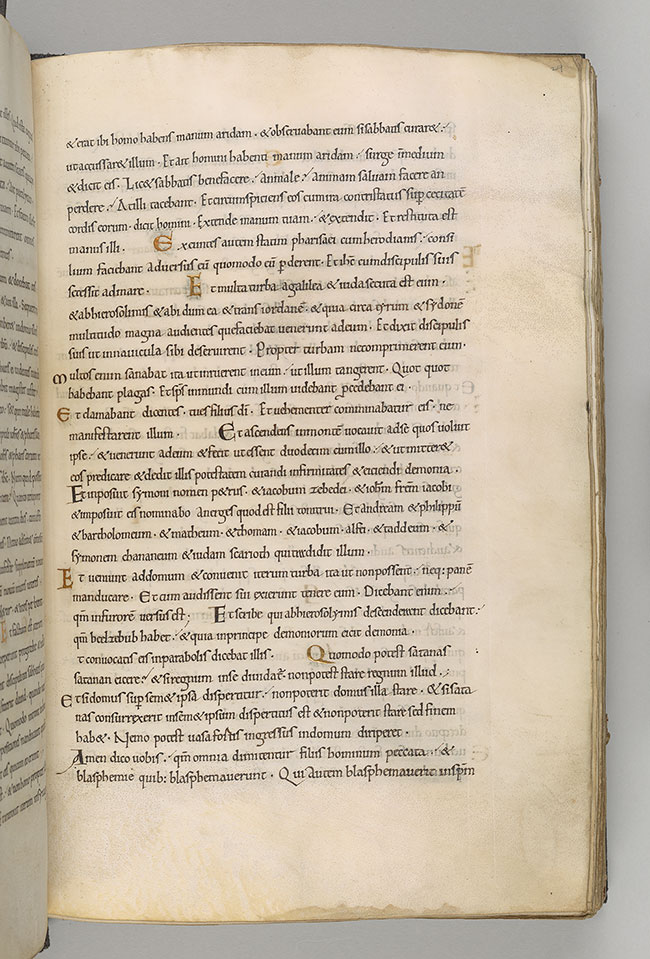 & erat ibi homo habens manum aridam · & obseruabant eum si sabbatis curar&·
ut accusar& illum · Et ait homini habenti manum aridam · surge in medium
& dicit eis · Lic& sabbatis benefacere · an male · animam saluam facere an
perdere · At illi tacebant · Et circumspiciens eos cum ira contristatus sup cecitatē
cordis eorum · dicit homini · Extende manum tuam · & extendit · Et restituta est
manus illi · Exeuntes autem statim pharisaei cum herodianis · consi
lium faciebant aduersus eū quomodo eū pderent · Et ihc cum discipulis suis
secessit ad mare · Et multa turba a galilea & iudea secuta est eum ·
& ab hierosolimis & ab idumea & trans iordanē · & qui circa tyrum & sydonē
multitudo magna audientes que faciebat uenerunt ad eum · Et dixit discipulis
suis ut in nauicula sibi deseruirent · Propter turbam ne comprimerent eum ·
Multos enim sanabat ita ut irruerent in eum · ut illum tangerent · Quot quot
habebant plagas · Et sps immundi cum illum uidebant pcedebant ei ·
Et clamabant dicentes · tu es filius dī · Et uehementer comminabatur eis · ne
manifestarent illum · Et ascendens in montē uocauit ad se quos uoluit
ipse · & uenerunt ad eum & fecit ut essent duodecim cum illo · & ut mitter&
eos predicare & dedit illis potestatem curandi infirmitates & eiciendi demonia ·
Et imposuit symoni nomen p&rus · & iacobum zebedei · & iohm frem iacobi
& imposuit eis nomina boanerges quod est filii tonitrui · Et andream & philippū
& bartholomeum · & matheum & thomam · & iacobum · alfei · & taddeum · &
symonem chananeum & iudam scarioth qui tradidit illum ·
Et ueniunt ad domum & conuenit iterum turba ita ut non possent · neq: panē
manducare · Et cum audissent sui exierunt tenere eum · Dicebant enim ·
qm in furorem uersus est · Et scribe qui ab hierosolymis descenderent dicebant ·
qm beelzebub habet · & quia in principe demoniorum eicit demonia ·
t conuocatis eis in parabolis dicebat illis · Quomodo potest satanas
satanan eicere · & si regnum in se diuidat& non potest stare regnum illud ·
Et si domus sup sem& ipsa dispertitur · non poterit domus illa stare · & si sata
nas consurrexerit in sem&ipsum dispertitus est & non poterit stare sed finem
hab& · Nemo potest uasa fortis ingressus in domum diripere ·
Amen dico uobis · qm omnia dimittentur filiis hominum peccata · &
blasphemie quib: blasphemauerunt · Qui autem blasphemauerit in spm